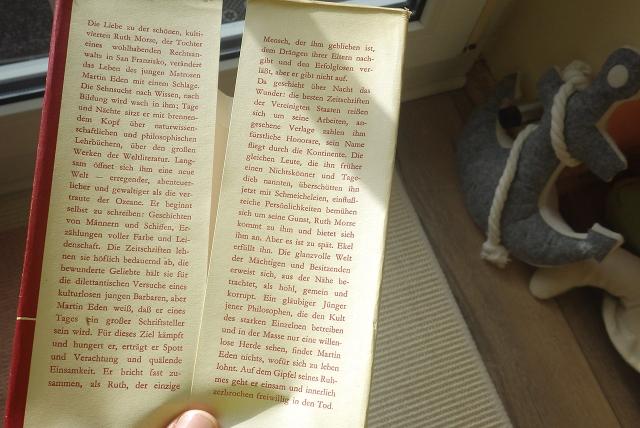 Die Liebe zu der schönen, kulti-
vierten Ruth Morse, der Tochter
eines wohlhabenden Rechtsan-
walts in San Franzisko, verändert
das Leben des jungen Matrosen
Martin Eden mit einem Schlage.
Die Sehnsucht nach Wissen, nach
Bildung wird wach in ihm; Tage
und Nächte sitzt er mit brennen-
dem Kopf über naturwissen-
schaftlichen und philosophischen
Lehrbüchern, über den großen
Werken der Weltliteratur. Lang-
sam öffnet sich ihm eine neue
Welt — erregender, abenteuer-
licher und gewaltiger als die ver-
traute der Ozeane. Er beginnt
selbst zu schreiben: Geschichten
von Männern und Schiffen, Er-
zählungen voller Farbe und Lei-
denschaft. Die Zeitschriften leh-
nen sie höflich bedauernd ab, die
bewunderte Geliebte hält sie für
die dilettantischen Versuche eines
kulturlosen jungen Barbaren, aber
Martin Eden weiß, daß er eines
Tages ein großer Schriftsteller
sein wird. Für dieses Ziel kämpft
und hungert er, erträgt er Spott
und Verachtung und quälende
Einsamkeit. Er bricht fast zu-
sammen, als Ruth, der einzige
Mensch, der ihm geblieben ist,
dem Drängen ihrer Eltern nach-
gibt und den Erfolglosen ver-
läßt, aber er gibt nicht auf.
Da geschieht über Nacht das
Wunder: die besten Zeitschriften
der Vereinigten Staaten reißen
sich um seine Arbeiten, an-
gesehene Verlage zahlen ihm
fürstliche Honorare, sein Name
fliegt durch die Kontinente. Die
gleichen Leute, die ihn früher
einen Nichtskönner und Tage-
dieb nannten, überschütten ihn
jetzt mit Schmeicheleien, einfluß-
reiche Persönlichkeiten bemühen
sich um seine Gunst, Ruth Morse
kommt zu ihm und bietet sich
ihm an. Aber es ist zu spät. Ekel
erfüllt ihn. Die glanzvolle Welt
der Mächtigen und Besitzenden
erweist sich, aus der Nähe be-
trachtet, als hohl, gemein und
korrupt. Ein gläubiger Jünger
jener Philosophen, die den Kult
des starken Einzelnen betreiben
und in der Masse nur eine willen-
lose Herde sehen, findet Martin
Eden nichts, wofür sich zu leben
lohnt. Auf dem Gipfel seines Ruh-
mes geht er einsam und innerlich
zerbrochen freiwillig in den Tod.